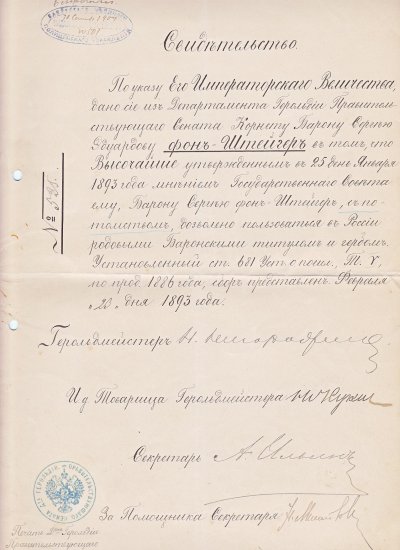 Свидѣтельство.
По указу Его Императорскаго Величества,
дано сіе изъ Департамента Герольдіи Правитель-
ствующаго Сената Корнету Барону Сергѣю
Эдуардову фонъ-Штейгеръ въ томъ, что
Высочайше утвержденнымъ въ 25 день Января
1893 года мнѣніемъ Государственнаго Совѣта
ему, Барону Сергѣю фонъ-Штейгеръ, съ по-
томствомъ, дозволено пользоваться въ Россіи
родовыми Баронскими титуломъ и гербомъ.
Установленный ст. 681 Уст. о пошл. Т. V,
по прод. 1886 года, сборъ представленъ. Февраля
„23" дня 1893 года.
№ 525.
Герольдмейстеръ
И д Товарища Герольдмейстера
Секретарь А. Ильинъ
За Помощника Секретаря
Печать Д-та Герольдіи
Правительствующаго